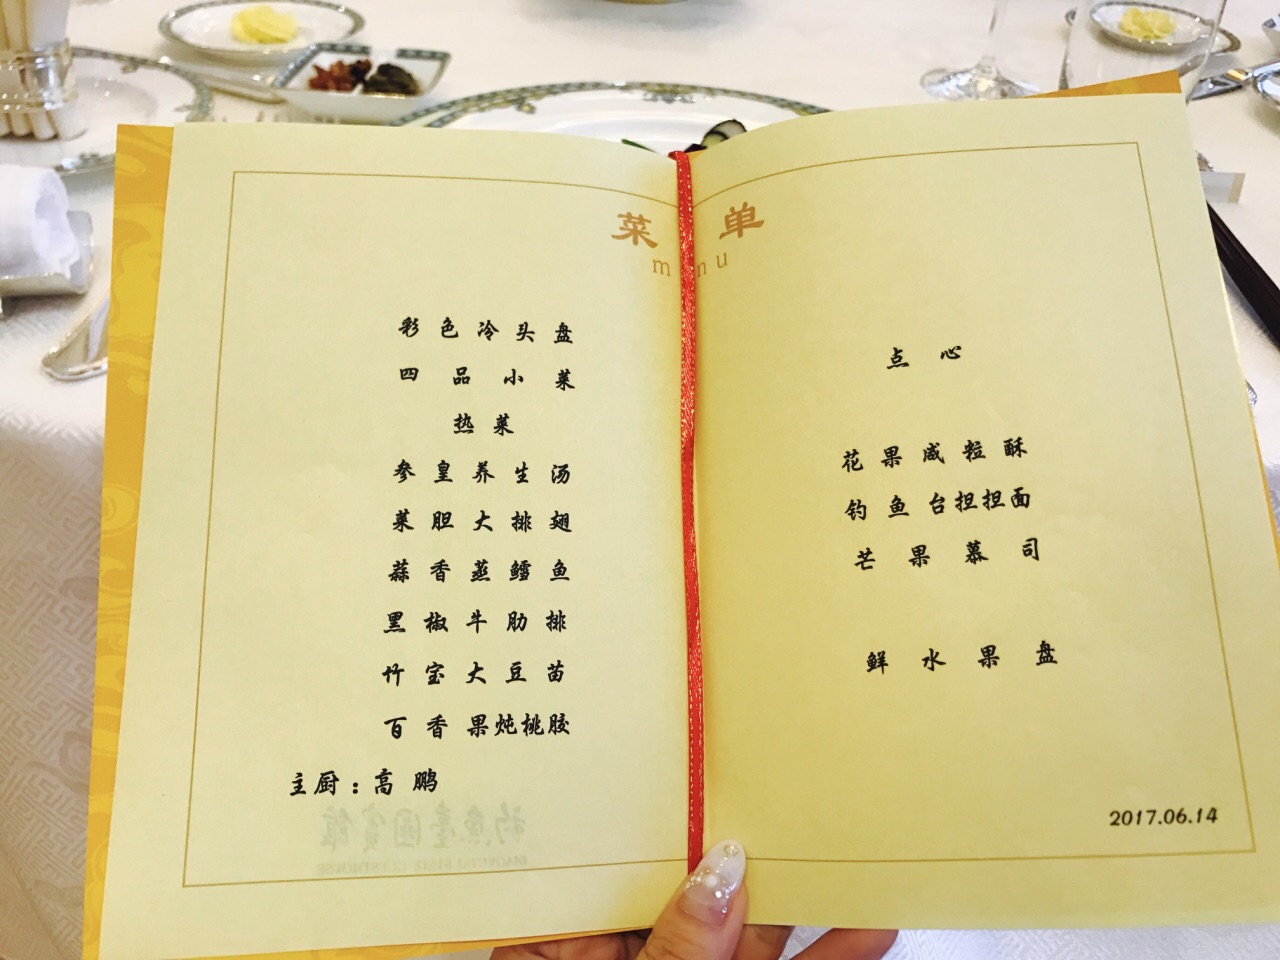 菜单
menu
彩色冷头盘
四品小菜
热菜
参皇养生汤
菜胆大排翅
蒜香蒸鳕鱼
黑椒牛肋排
竹宝大豆苗
百香果炖桃胶
主厨：高鹏
钓鱼臺國賓館
DIAOYUTAI STATE GUESTHOUSE
点心
花果咸粒酥
钓鱼台担担面
芒果慕司
鲜水果盘
2017.06.14